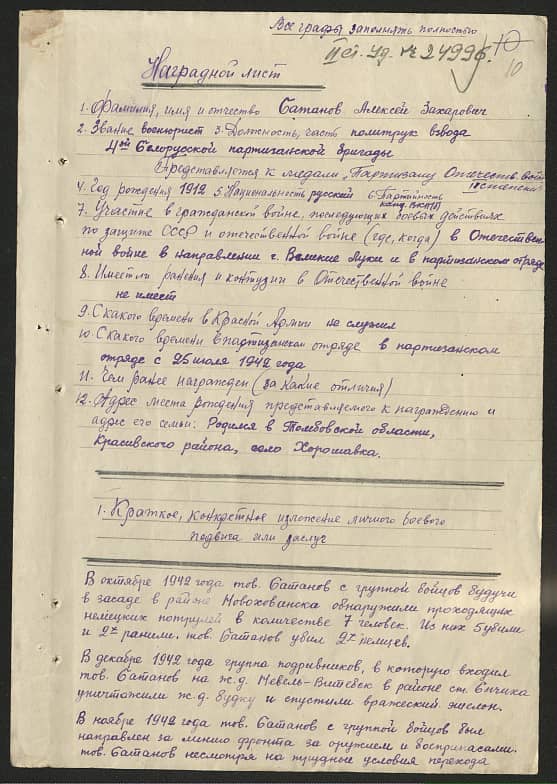 Все графы заполнять полностью
10
IIст. Уд. № 24996.
10
Наградной лист
1. Фамилия, имя и отчество Сатанов Алексей Захарович
2. Звание военюрист 3. Должность, часть политрук взвода
4ой Белорусской партизанской бригады
Представляется к медали „Партизану Отечеств. войны
IIстепени"
4. Год рождения 1912 5. Национальность русский 6. Партийность
канд. ВКП(б)
7. Участие в гражданской войне, последующих боевых действиях
по защите СССР и отечественной войне (где, когда) в Отечествен-
ной войне в направлении г. Великие Луки и в партизанском отряде
8. Имеет ли ранения и контузии в Отечественной войне
не имеет
9. С какого времени в Красной Армии не служил
10. С какого времени в партизанском отряде в партизанском
отряде с 25 июля 1942 года
11. Чем ранее награжден (за какие отличия)
12. Адрес места рождения представляемого к награждению и
адрес его семьи: Родился в Томбовской области,
Красивского района, село Хорошавка.
1. Краткое, конкретное изложение личного боевого
подвига или заслуг
В октябре 1942 года тов. Сатанов с группой бойцов будучи
в засаде в районе Новохованска обнаружили проходящих
немецких потрулей в количестве 7 человек. Из них 5 убили
и 2х ранили. тов. Сатанов убил 2х немцев.
В декабре 1942 года группа подрывников, в которую входил
тов. Сатанов на ж.д. Невель-Витебск в районе ст.
уничтожили ж.д. будку и спустили вражеский эшелон.
В ноябре 1942 года тов. Сатанов с группой бойцов был
направлен за линию фронта за оружием и боеприпасами.
тов. Сатанов несмотря на трудные условия перехода